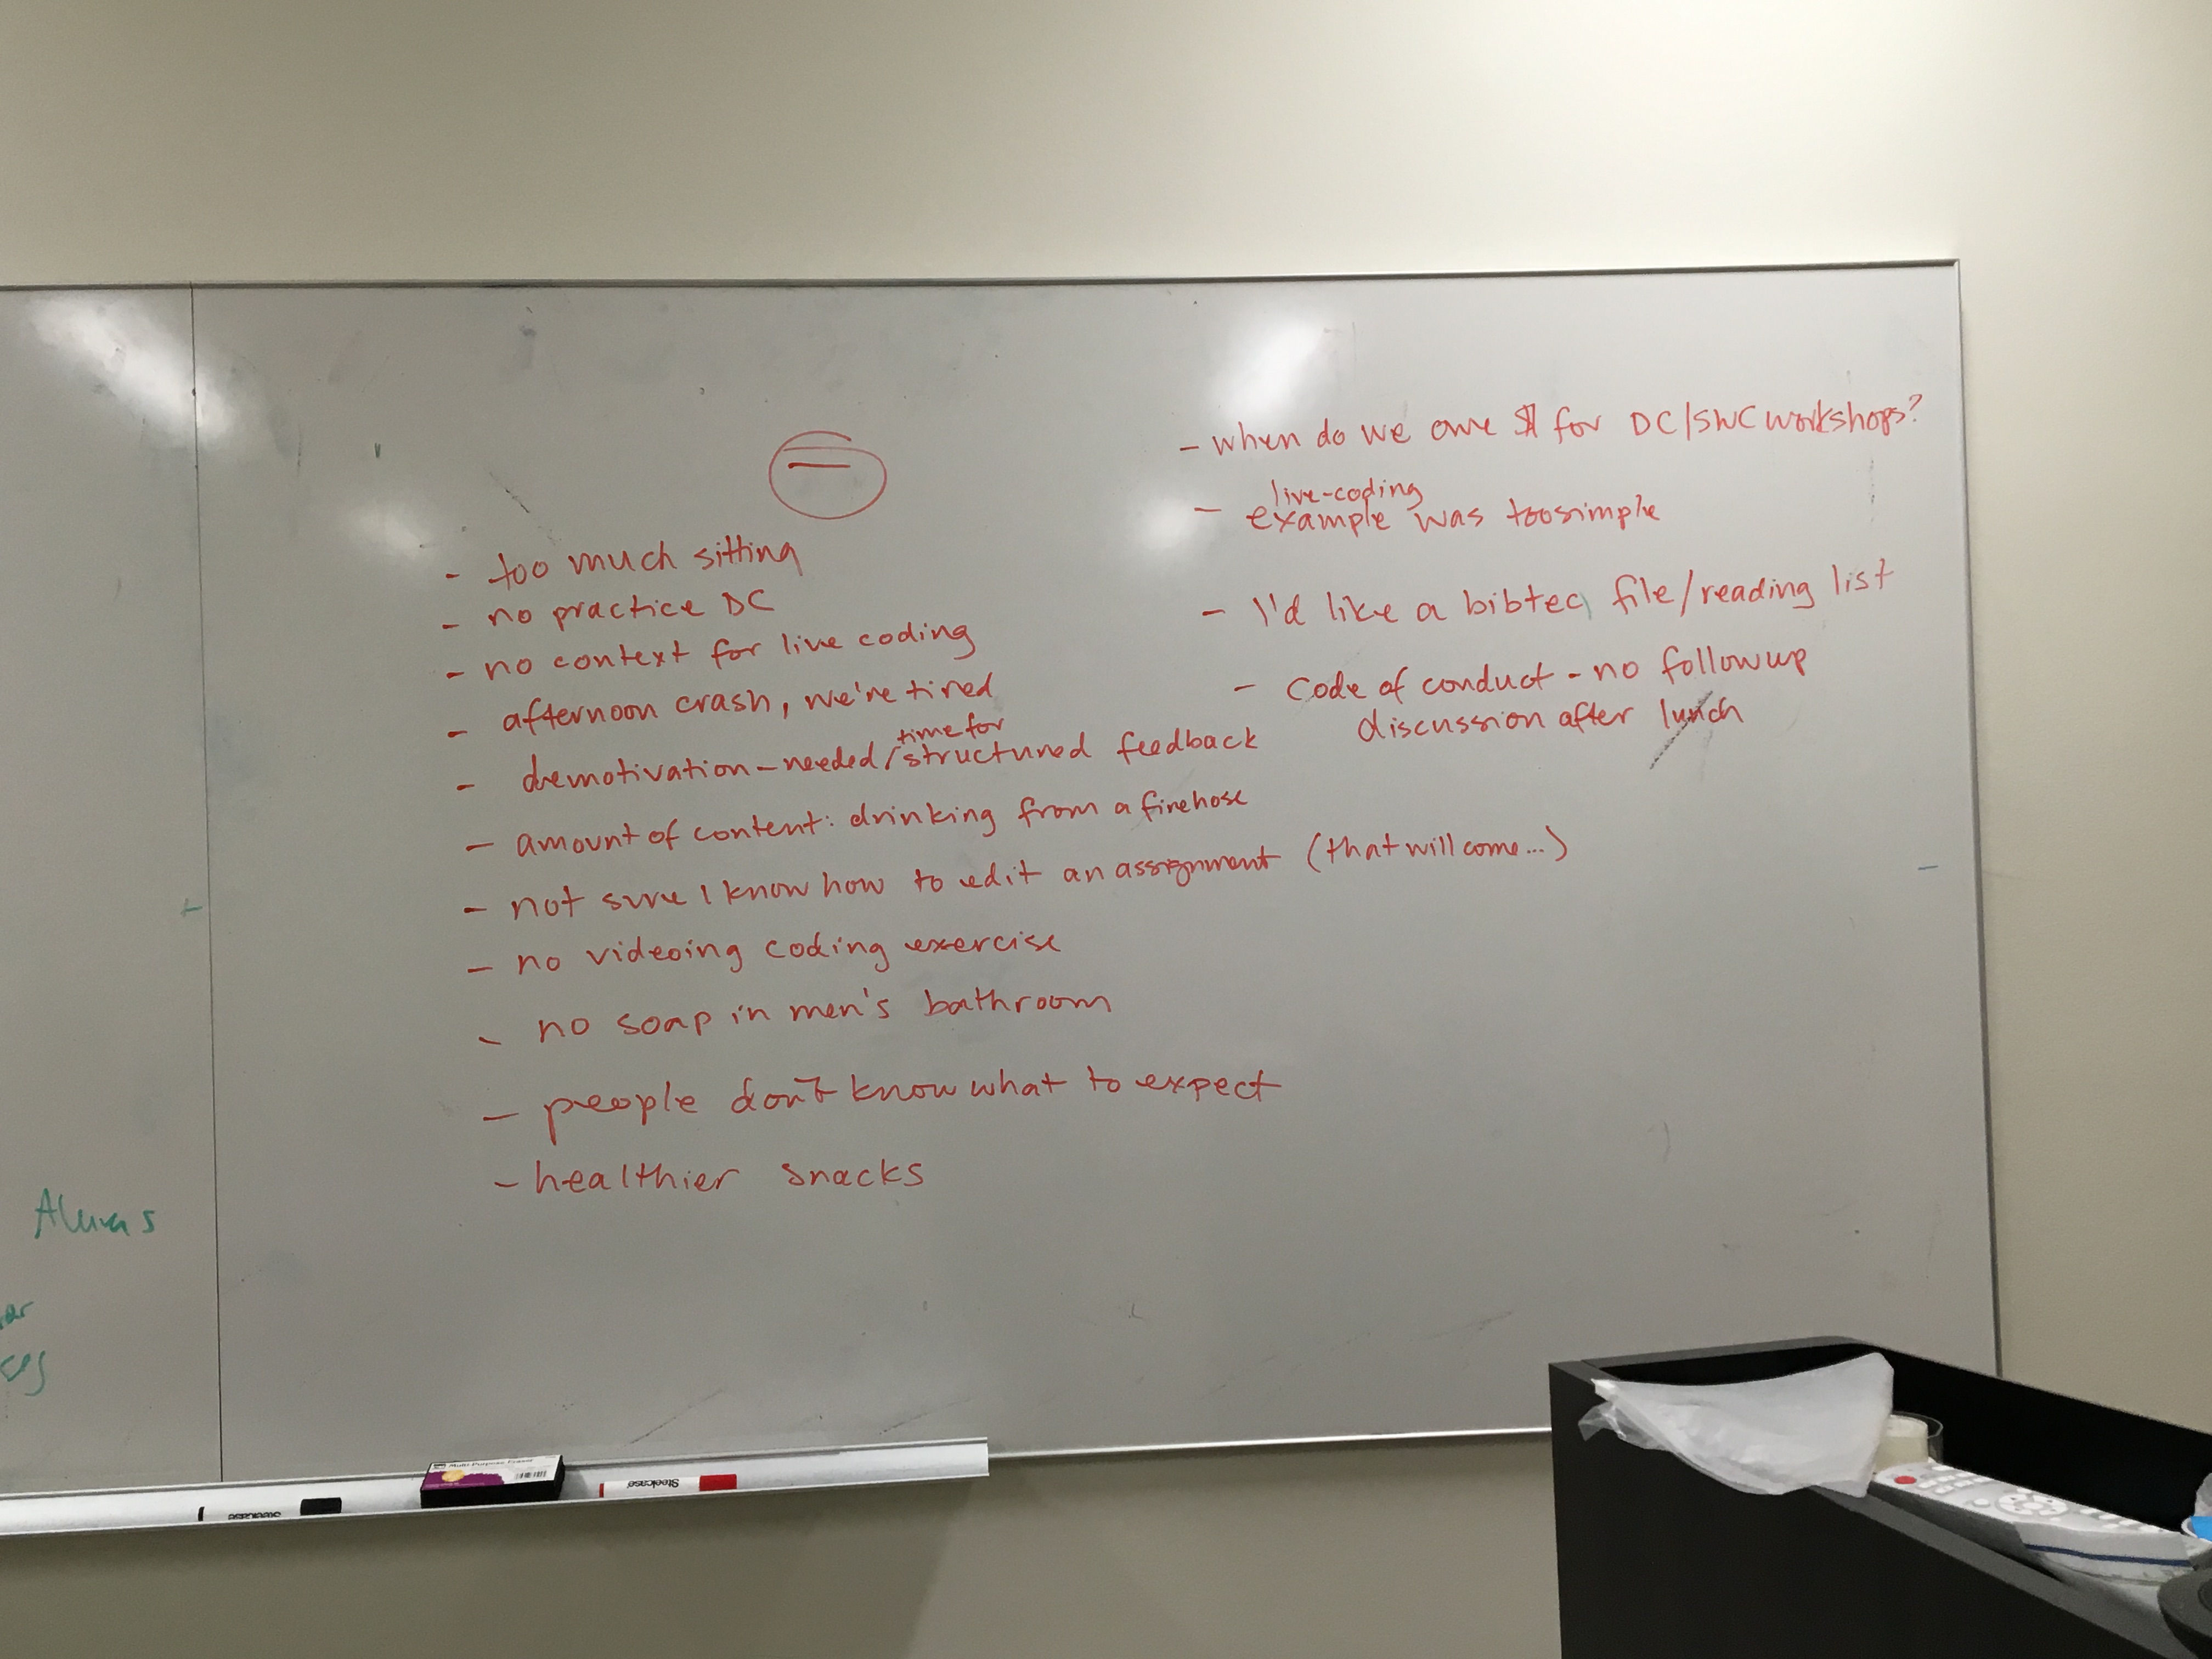 —
- too much sitting
- no practice DC
- no context for live coding
- afternoon crash, we're tired
- demotivation - needed / time for structured feedback
- amount of content: drinking from a firehose
- not sure I know how to edit an assignment (that will come...)
- no videoing coding exercise
- no soap in men's bathroom
- people don't know what to expect
- healthier snacks
- when do we owe $ for DC/SWC workshops?
- live-coding example was too simple
- I'd like a bibtec file/reading list
- Code of conduct - no follow up
discussion after lunch
Multi-Purpose Eraser
Steelcase
Steelcase